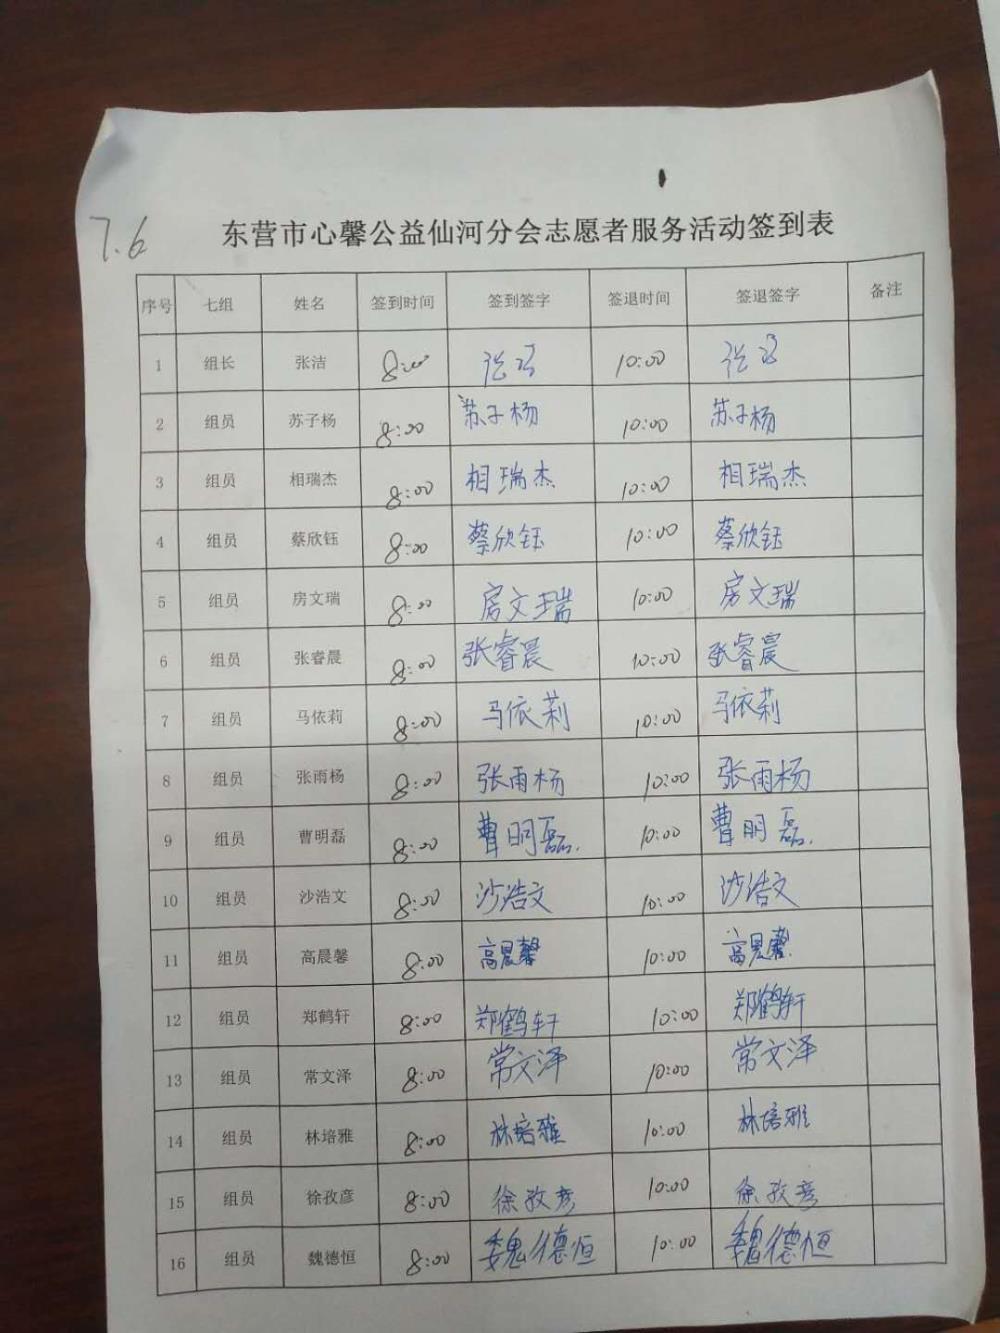 7.6
东营市心馨公益仙河分会志愿者服务活动签到表
序号 七组 姓名 签到时间 签到签字 签退时间 签退签字 备注
1 组长 张洁 8:00 张洁 10:00 张洁
2 组员 苏子杨 8:00 苏子杨 10:00 苏子杨
3 组员 相瑞杰 8:00 相瑞杰 10:00 相瑞杰
4 组员 蔡欣钰 8:00 蔡欣钰 10:00 蔡欣钰
5 组员 房文瑞 8:00 房文瑞 10:00 房文瑞
6 组员 张睿晨 8:00 张睿晨 10:00 张睿晨
7 组员 马依莉 8:00 马依莉 10:00 马依莉
8 组员 张雨杨 8:00 张雨杨 10:00 张雨杨
9 组员 曹明磊 8:00 曹明磊. 10:00 曹明磊.
10 组员 沙浩文 8:00 沙浩文 10:00 沙浩文
11 组员 高晨馨 8:00 高晨馨 10:00 高晨馨
12 组员 郑鹤轩 8:00 郑鹤轩 10:00 郑鹤轩
13 组员 常文泽 8:00 常文泽 10:00 常文泽
14 组员 林培雅 8:00 林培雅 10:00 林培雅
15 组员 徐孜彦 8:00 徐孜彦 10:00 徐孜彦
16 组员 魏德恒 8:00 魏德恒 10:00 魏德恒